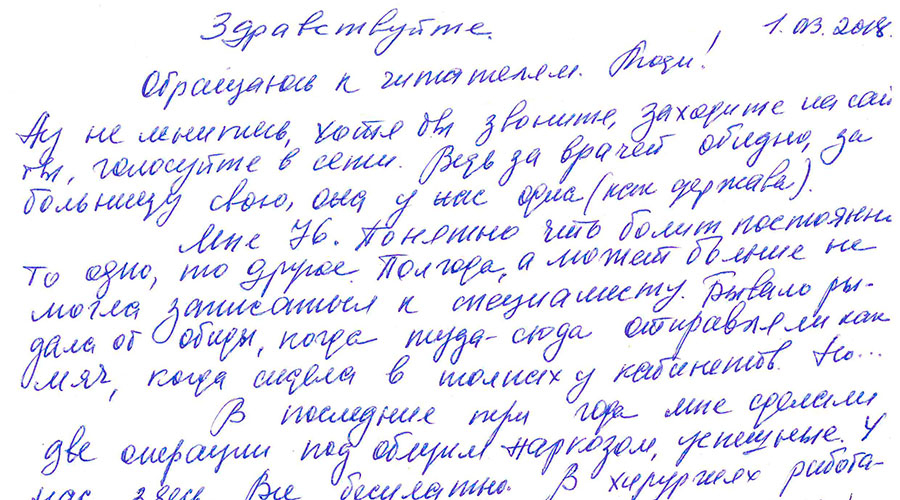 Здравствуйте. 1.03.2018.
Обращаюсь к читателям. Люди!
Ну не ленитесь, хотя бы звоните, заходите на сай
ты, голосуйте в сети. Ведь за врачей обидно, за
больницу свою, она у нас одна (как держава).
Мне 76. Понятно что болит постоянно
то одно, то другое. Полгода, а может больше не
могла записаться к специалисту. Бывало ры-
дала от обиды, когда туда-сюда отправляли как
мяч, когда сидела в толпах у кабинетов. Но...
В последние три года мне сделали
две операции под общим наркозом, успешные. У
нас здесь. Все бесплатно. В хирургиях работа-